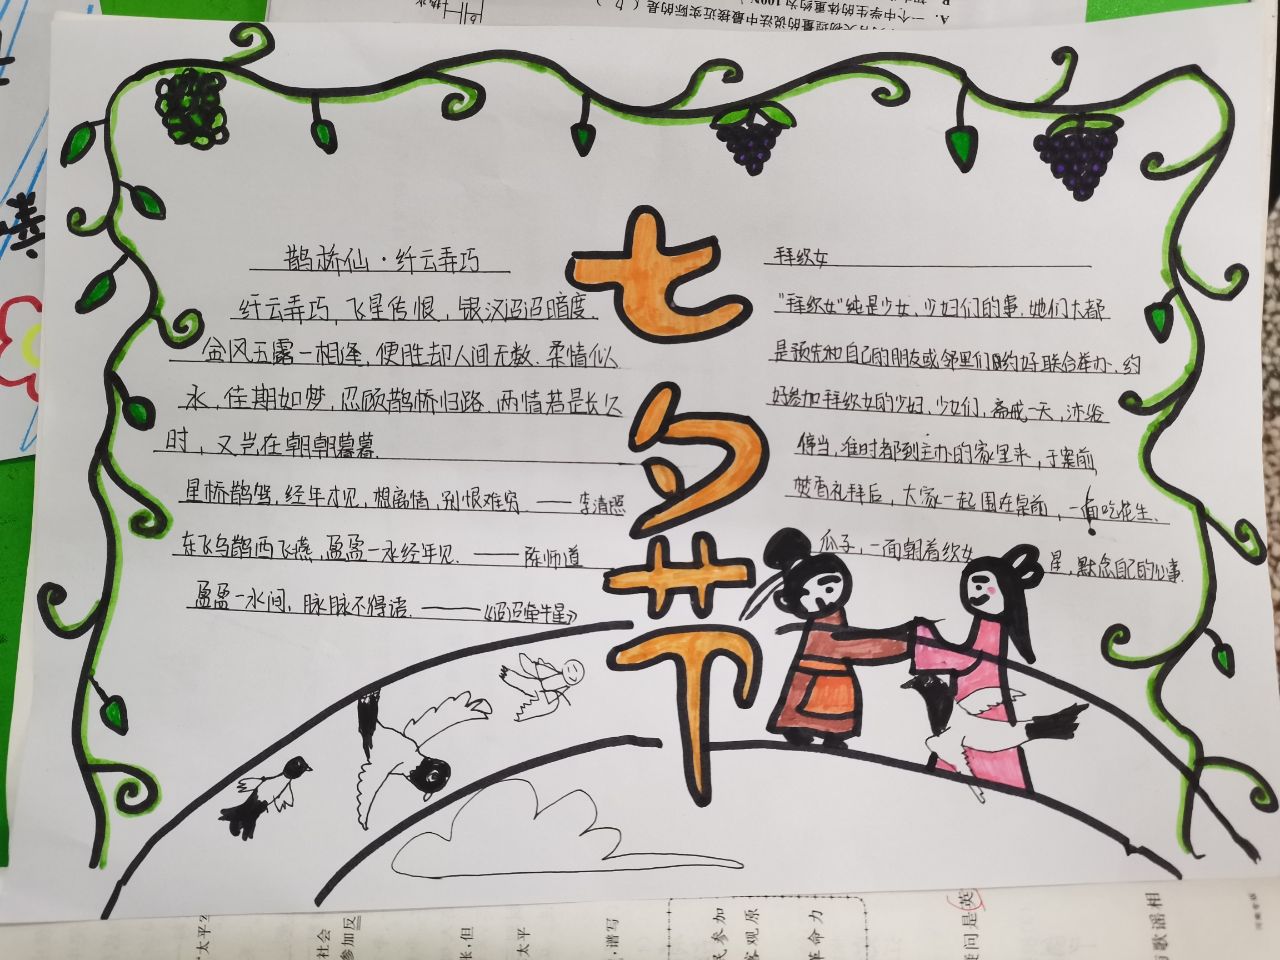 鹊桥仙·纤云弄巧
纤云弄巧，飞星传恨，银汉迢迢暗度.
金风玉露一相逢，便胜却人间无数.柔情似
水，佳期如梦，忍顾鹊桥归路.两情若是长久
时，又岂在朝朝暮暮.
星桥鹊驾，经年才见，想离情，别恨难穷.——李清照
东飞乌鹊西飞燕，盈盈一水经年见.——陈师道
盈盈一水间，脉脉不得语.——《迢迢牵牛星》
七夕节
拜织女
"拜织女"纯是少女、少妇们的事.她们大都
是预先和自己的朋友或邻里们约好联合举办、约
好参加拜织女的少妇、少女们，斋戒一天，沐浴
停当，准时都到主办的家里来，于案前
焚香礼拜后，大家一起围在桌前，一面吃花生、
瓜子，一面朝着织女星，默念自己的心事.
A. 一个中学生的体重约为100N
的说法中最接近实际的是（ b ）
太平
社会
参加反
，但
太平
，谱写
民参加
客观原
革命力
问是英
歌谣相